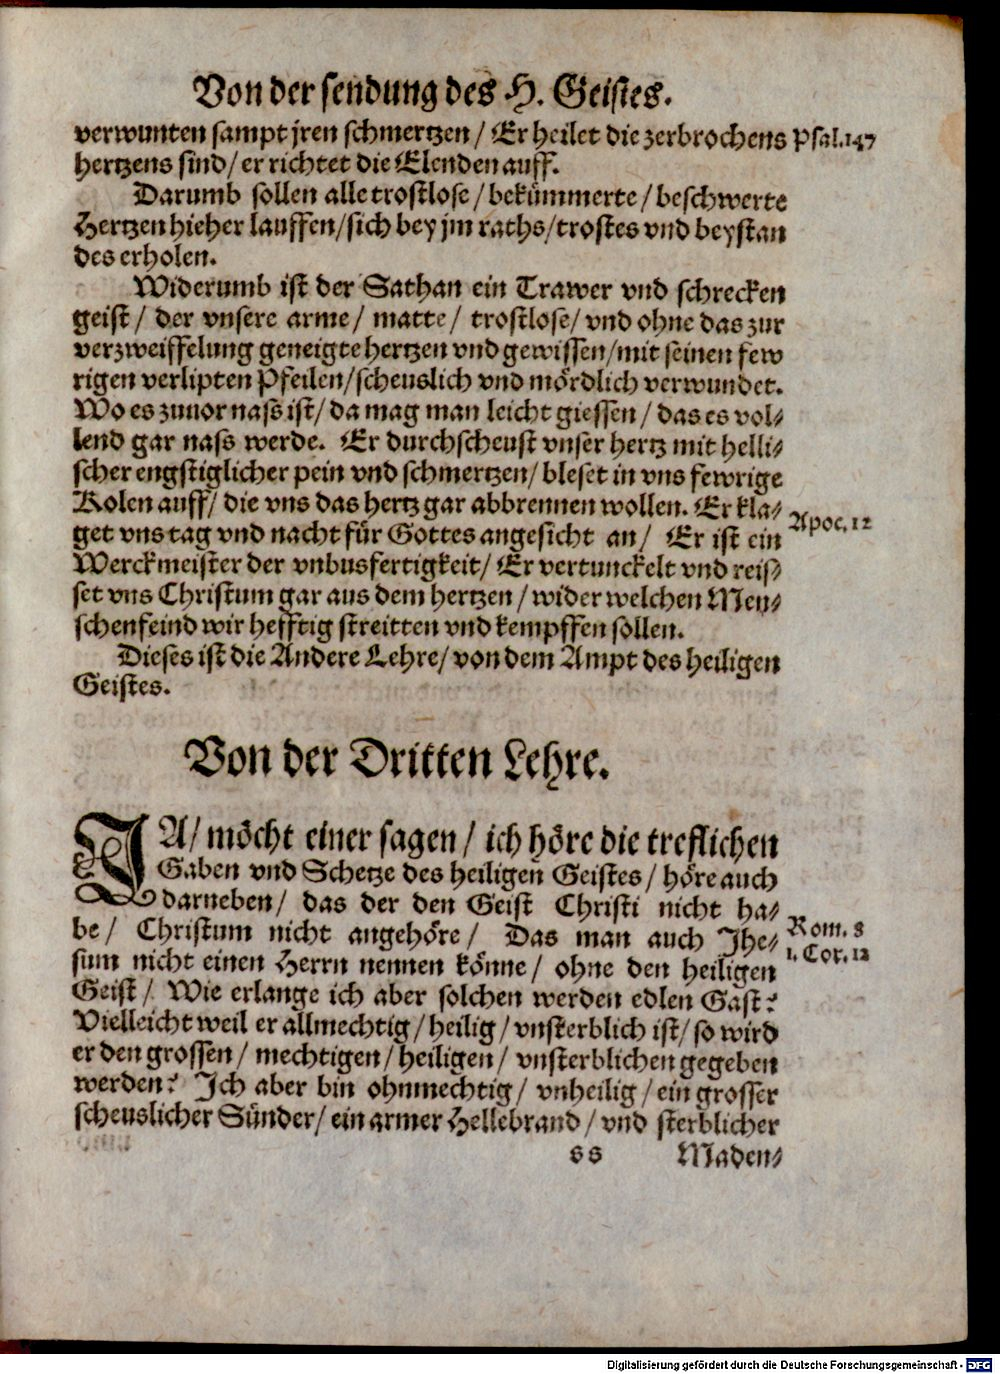 Von der sendung des H. Geistes.
verwunten sampt jren schmertzen / Er heilet die zerbrochens Psal.147
hertzens sind / er richtet die Elenden auff.
Darumb sollen alle trostlose / bekümmerte / beschwerte
Hertzen hieher lauffen / sich bey jm raths / trostes vnd beystan
des erholen.
Widerumb ist der Sathan ein Trawer vnd schrecken
geist / der vnsere arme / matte / trostlose / vnd ohne das zur
verzweiffelung geneigte hertzen vnd gewissen / mit seinen few
rigen verlipten Pfeilen / scheuslich vnd mördlich verwundet.
Wo es zuuor nass ist / da mag man leicht giessen / das es vol⸗
lend gar nass werde. Er durchscheust vnser hertz mit helli⸗
scher engstiglicher pein vnd schmertzen / bleset in vns fewrige
Kolen auff / die vns das hertz gar abbrennen wollen. Er kla⸗
get vns tag vnd nacht für Gottes angesicht an / Er ist ein Apoc. 12
Werckmeister der vnbusfertigkeit / Er vertunckelt vnd reis⸗
set vns Christum gar aus dem hertzen / wider welchen Men⸗
schenfeind wir hefftig streitten vnd kempffen sollen.
Dieses ist die Andere Lehre / von dem Ampt des heiligen
Geistes.
Von der Dritten Lehre.
JA / möcht einer sagen / ich höre die treflichen
Gaben vnd Schetze des heiligen Geistes / höre auch
darneben / das der den Geist Christi nicht ha⸗
be / Christum nicht angehöre / Das man auch Jhe⸗ Rom. 8
sum nicht einen Herrn nennen könne / ohne den heiligen 1. Cor. 12
Geist / Wie erlange ich aber solchen werden edlen Gast?
Vielleicht weil er allmechtig / heilig / vnsterblich ist / so wird
er den grossen / mechtigen / heiligen / vnsterblichen gegeben
werden? Ich aber bin ohnmechtig / vnheilig / ein grosser
scheuslicher Sünder / ein armer Hellebrand / vnd sterblicher
ss Maden⸗
Digitalisierung gefördert durch die Deutsche Forschungsgemeinschaft - DFG